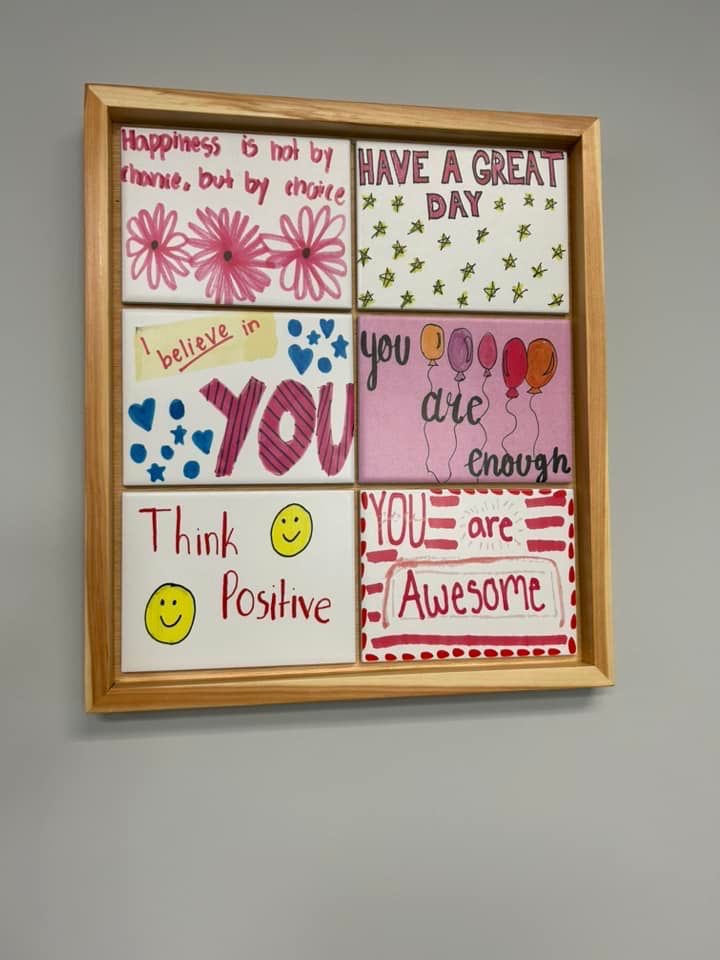 Happiness is not by
chance, but by choice
HAVE A GREAT
DAY
I
believe in
YOU
you
are
enough
Think
Positive
YOU are
Awesome